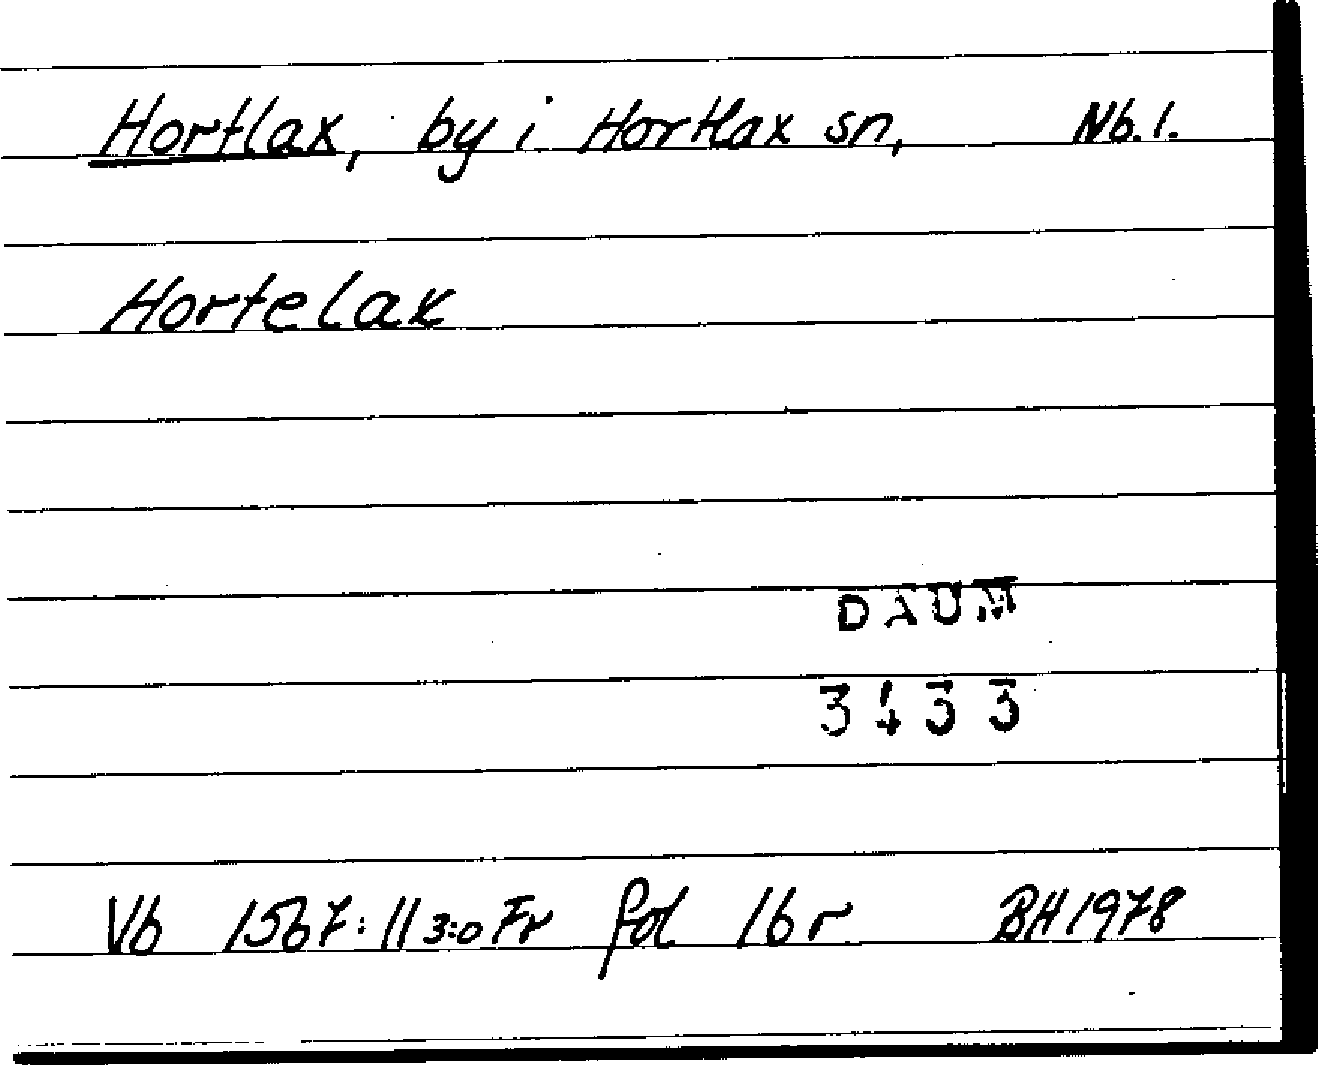 Hortlax, by i Hortlax sn, Nb.l.
Hortelax
DAUM
3433
Vb 1567:11 3:0 Fr fol 16 r BH 1978